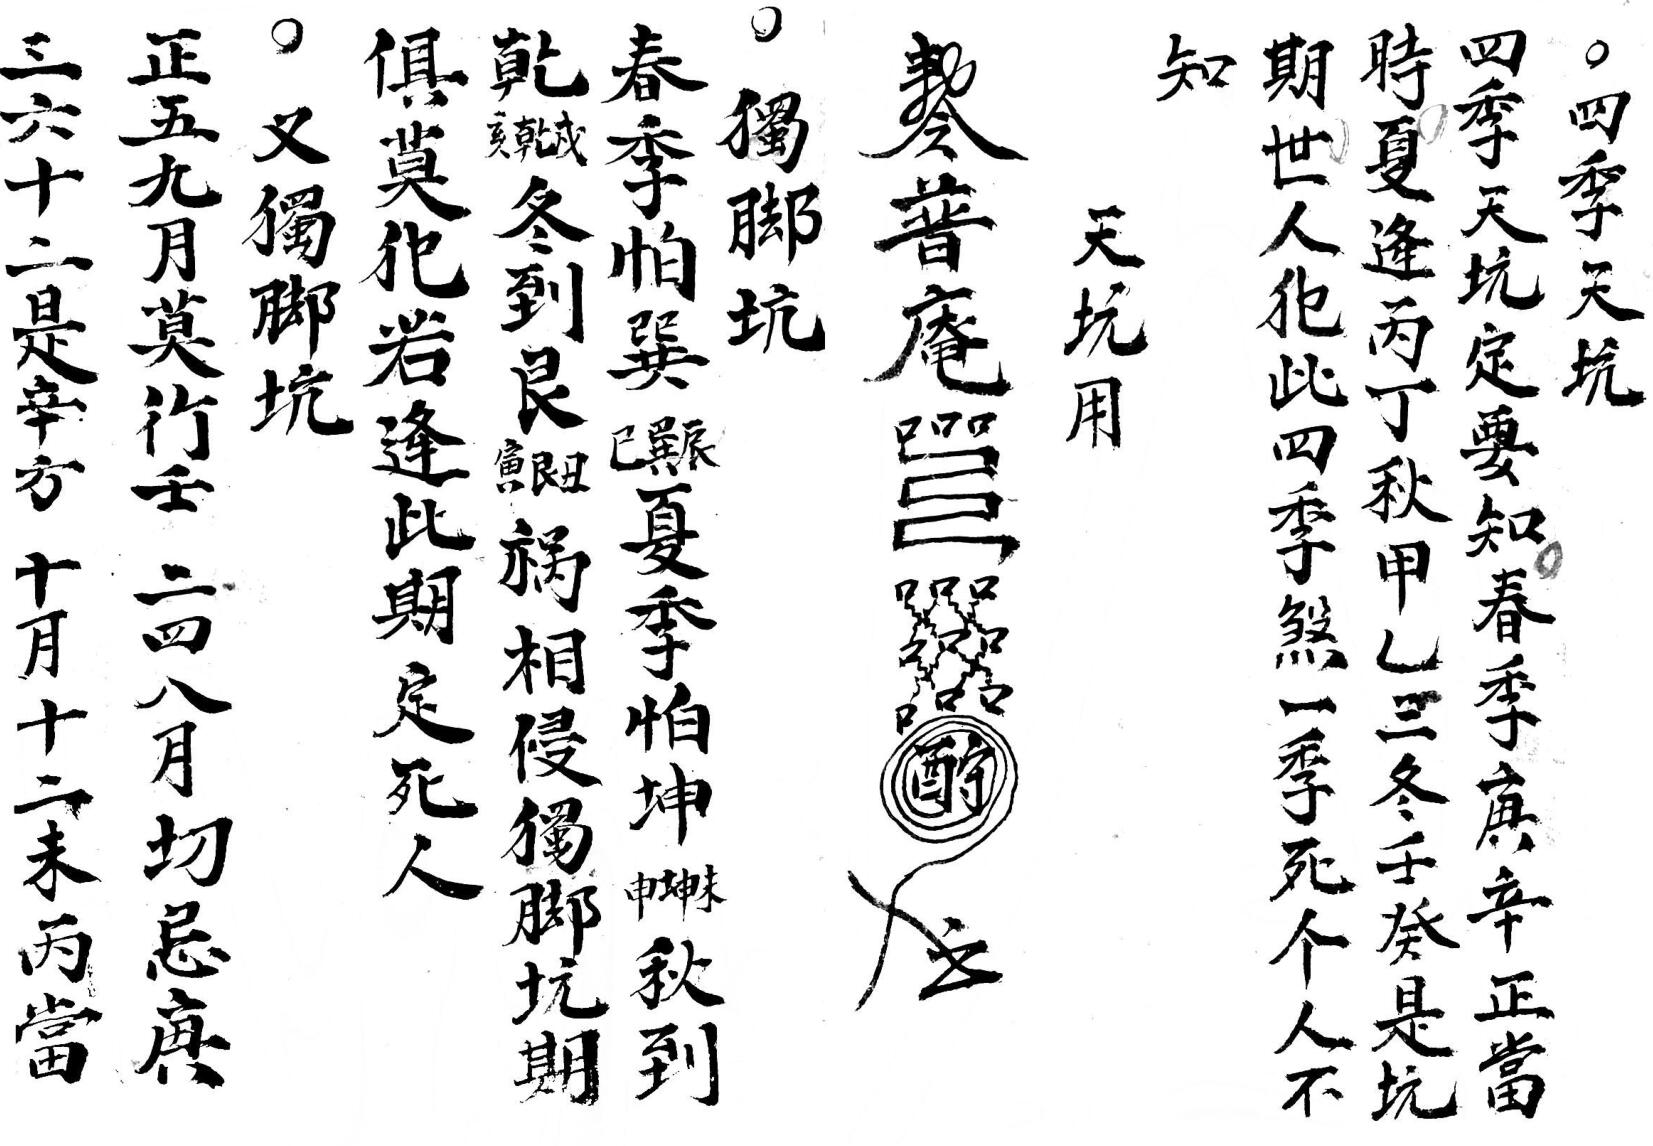 ○四季天坑
四季天坑定要知春季庚辛正當
時夏逢丙丁秋甲乙三冬壬癸是坑
期世人犯此四季煞一季死个人不
知
天坑用
普庵
○獨脚坑
春季怕巽辰巽巳夏季怕坤未坤申秋到
乾戌乾亥冬到艮丑艮寅祸相侵獨脚坑期
俱莫犯若逢此期定死人
○又獨脚坑
正五九月莫行壬 二四八月切忌庚
三六十二是辛方 十月十二未丙當